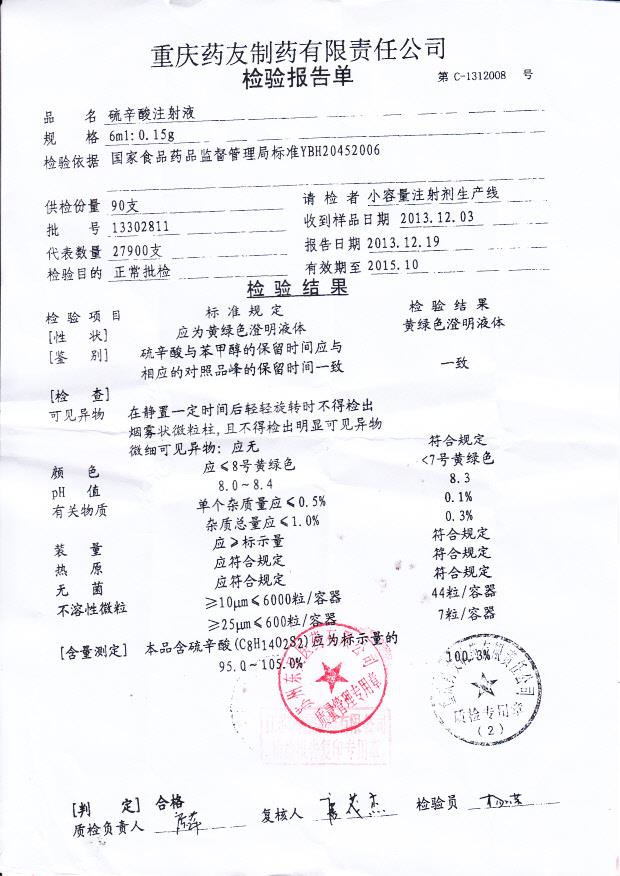 重庆药友制药有限责任公司
检验报告单
第 C-1312008 号
品 名 硫辛酸注射液
规 格 6ml:0.15g
检验依据 国家食品药品监督管理局标准YBH20452006
供检份量 90支 请 检 者 小容量注射剂生产线
批 号 13302811 收到样品日期 2013.12.03
代表数量 27900支 报告日期 2013.12.19
检验目的 正常批检 有效期至 2015.10
检 验 结 果
检 验 项 目 标 准 规 定 检 验 结 果
[性 状] 应为黄绿色澄明液体 黄绿色澄明液体
[鉴 别] 硫辛酸与苯甲醇的保留时间应与
相应的对照品峰的保留时间一致 一致
[检 查]
可见异物 在静置一定时间后轻轻旋转时不得检出
烟雾状微粒柱,且不得检出明显可见异物
微细可见异物: 应无 符合规定
颜 色 应≤8号黄绿色 <7号黄绿色
pH 值 8.0～8.4 8.3
有关物质 单个杂质量应≤0.5% 0.1%
杂质总量应≤1.0% 0.3%
装 量 应≥标示量 符合规定
热 原 应符合规定 符合规定
无 菌 应符合规定 符合规定
不溶性微粒 ≥10μm≤6000粒/容器 44粒/容器
≥25μm≤600粒/容器 7粒/容器
[含量测定] 本品含硫辛酸(C8H14O2S2)应为标示量的
95.0～105.0% 100.3%
质量管理专用章
质检专用章
(2)
[判 定] 合格
质检负责人 复核人 检验员